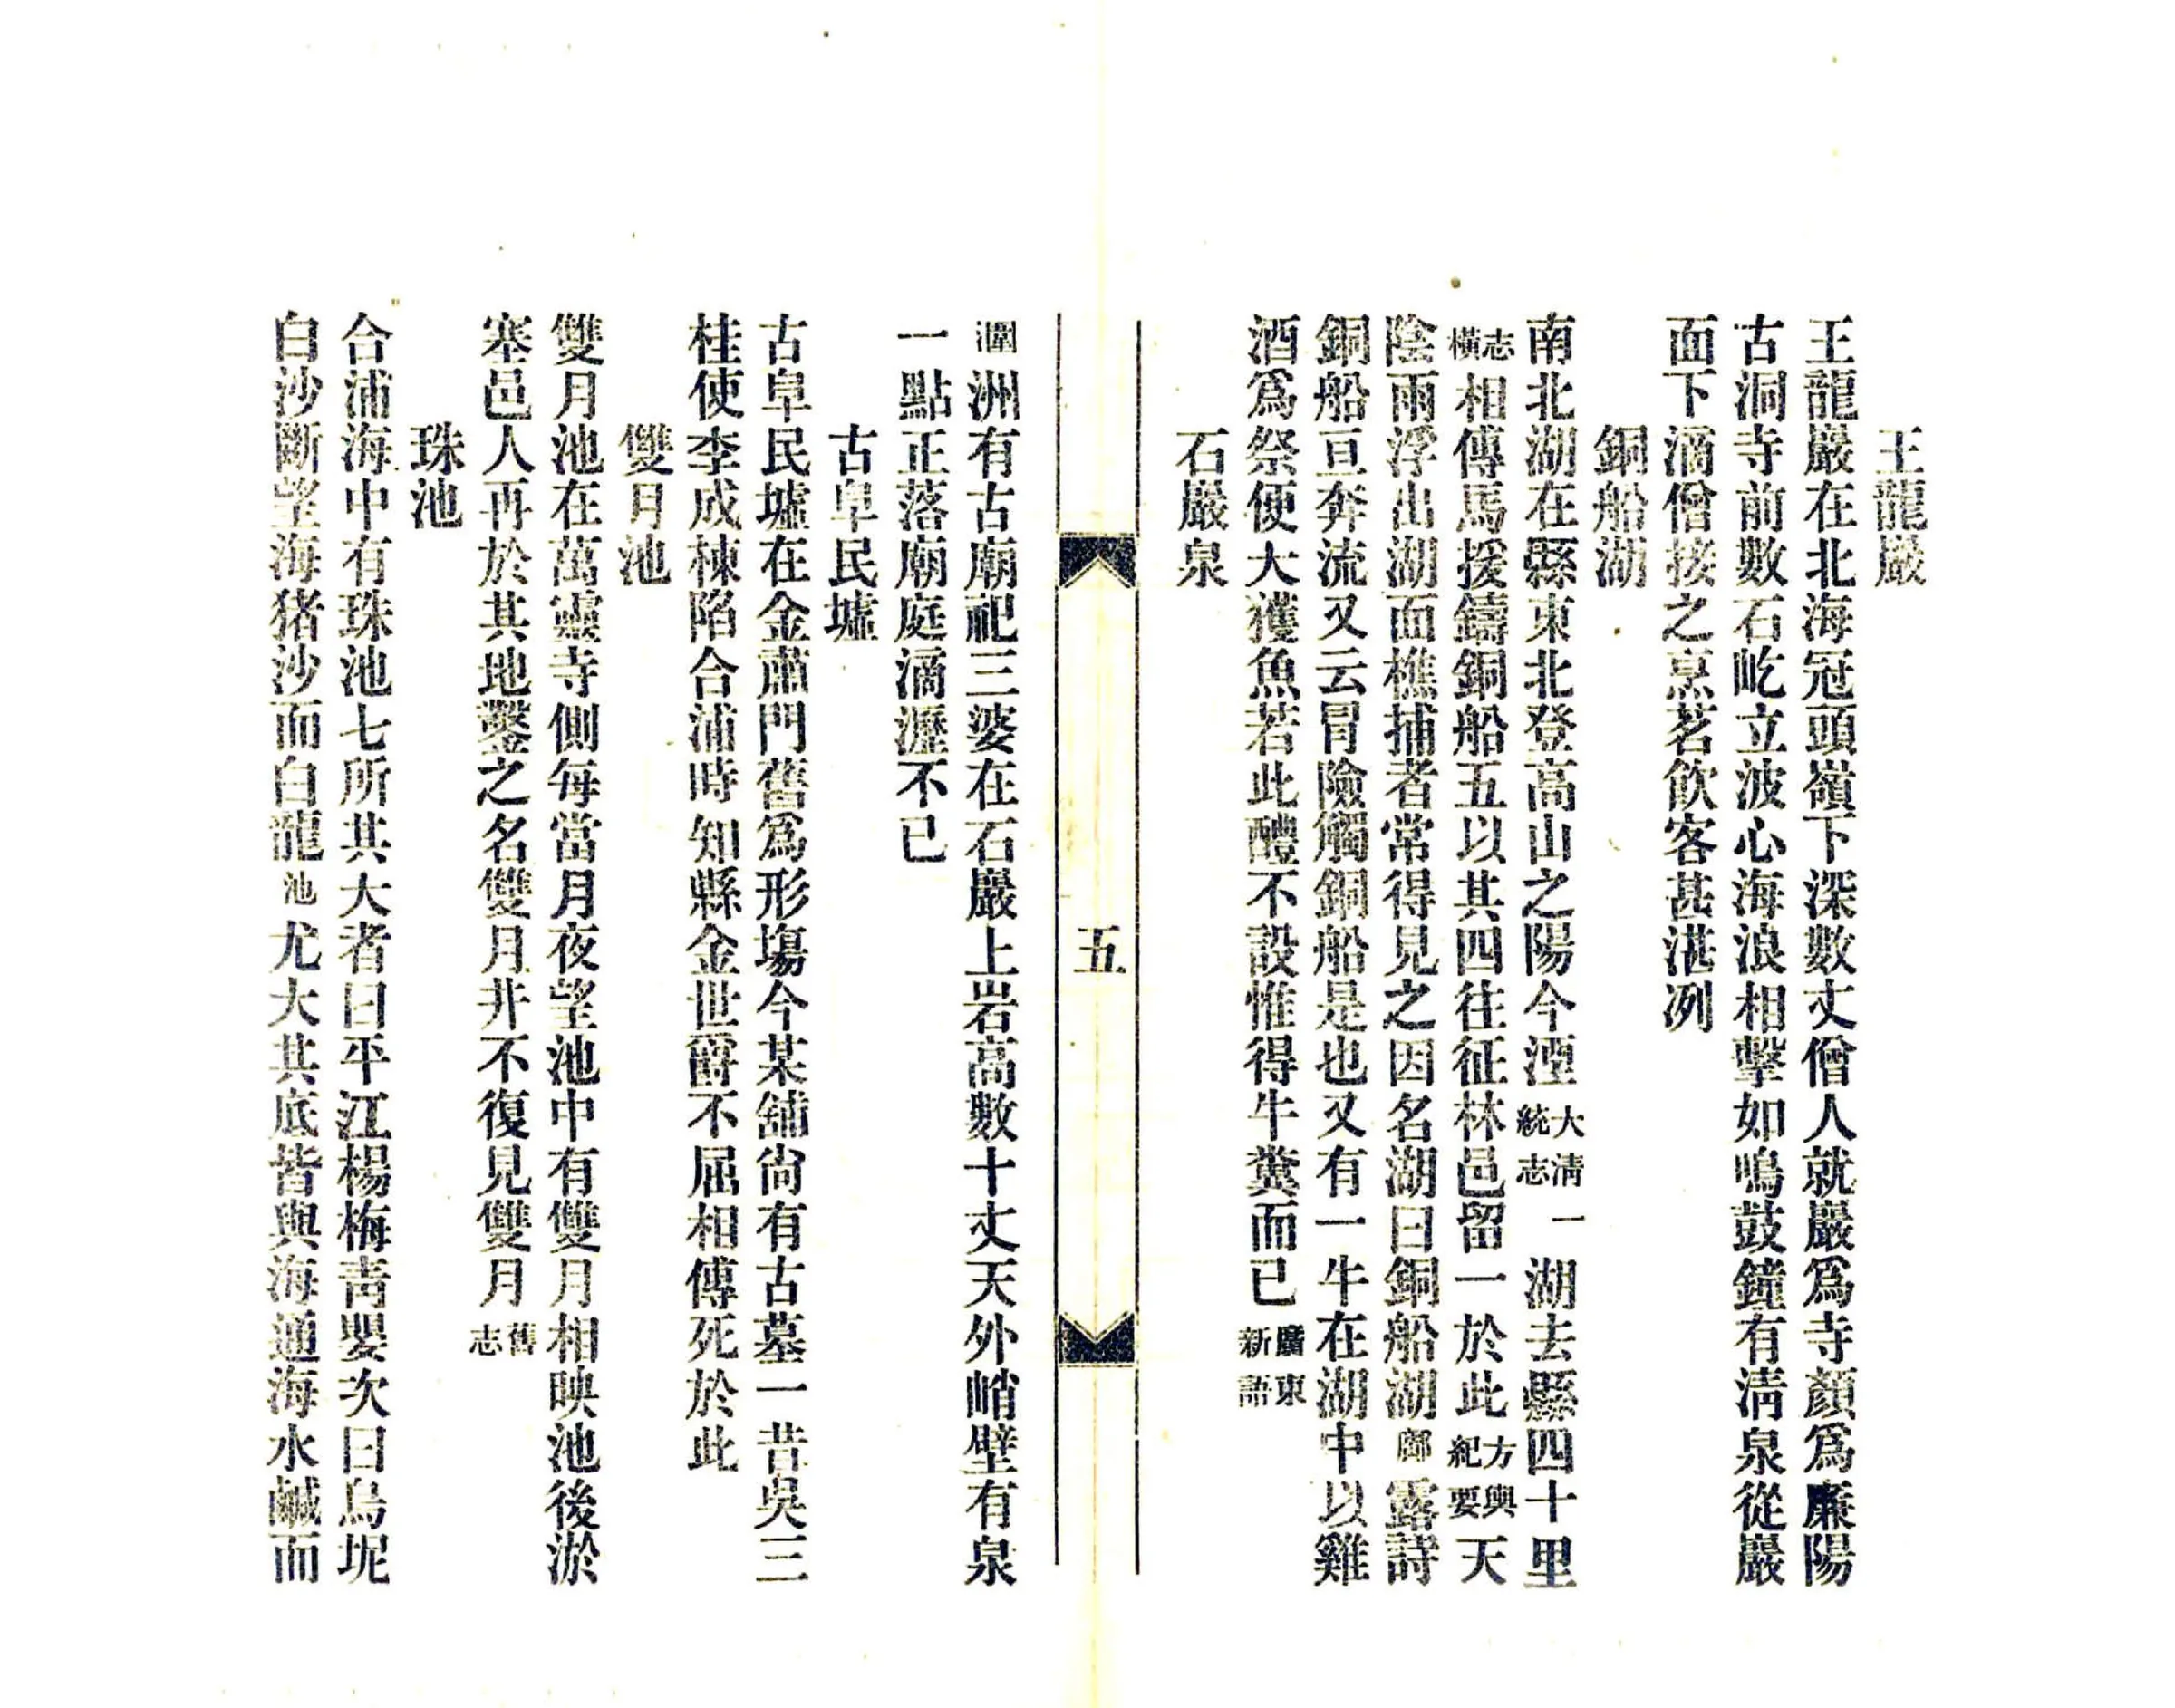 王龍巖
王龍巖在北海冠頭嶺下深數丈僧人就巖爲寺顏爲廉陽
古洞寺前數石屹立波心海浪相擊如鳴鼓鐘有清泉從巖
面下滴僧接之烹茗飲客甚湛冽
銅船湖
南北湖在縣東北登高山之陽今湮大清統志一湖去縣四十里
橫志相傳馬援鑄銅船五以其四往征林邑留一於此方輿紀要天
陰雨浮出湖面樵捕者常得見之因名湖曰銅船湖鄺露詩
銅船亘奔流又云冒險觸銅船是也又有一牛在湖中以雞
酒爲祭便大獲魚若此醴不設惟得牛糞而已廣東新語
石巖泉
五
潿洲有古廟祀三婆在石巖上岩高數十丈天外峭壁有泉
一點正落廟庭滴瀝不已
古阜民墟
古阜民墟在金肅門舊爲形塲今某舖尙有古墓一昔吳三
桂使李成棟陷合浦時知縣金世爵不屈相傳死於此
雙月池
雙月池在萬靈寺側每當月夜望池中有雙月相映池後淤
塞邑人再於其地鑿之名雙月井不復見雙月舊志
珠池
合浦海中有珠池七所其大者曰平江楊梅青嬰次曰烏坭
白沙斷望海猪沙而白龍池尤大其底皆與海通海水鹹而